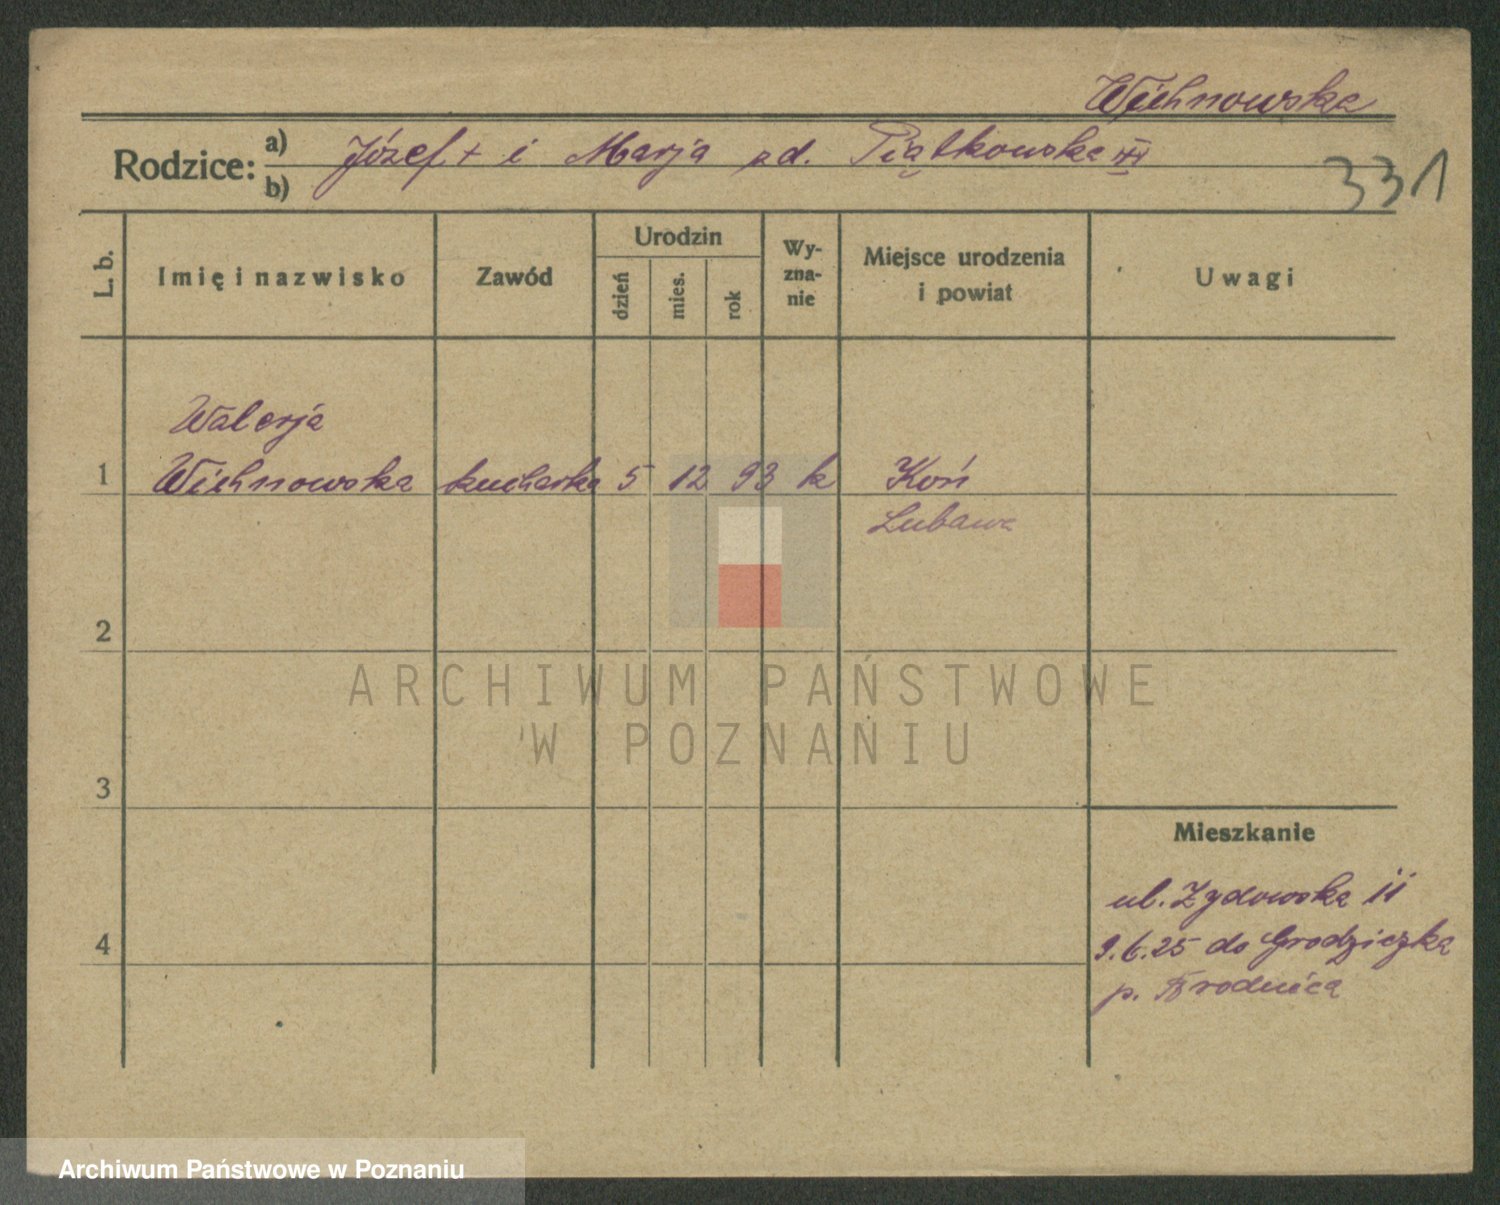 Wichnowska
Rodzice: a) Józef + i Marja zd. Piątkowska
b)
331
L. b.
Imię i nazwisko
Zawód
Urodzin
dzień
mies.
rok
Wy-
zna-
nie
Miejsce urodzenia
i powiat
Uwagi
Walerja
1 Wichnowska kucharka 5 12 93 k Koń
Lubawa
2
ARCHIWUM PAŃSTWOWE
W POZNANIU
3
Mieszkanie
ul. Zydowska 11
4
9.6.25 do Grodziczka
p. Brodnica
Archiwum Państwowe w Poznaniu